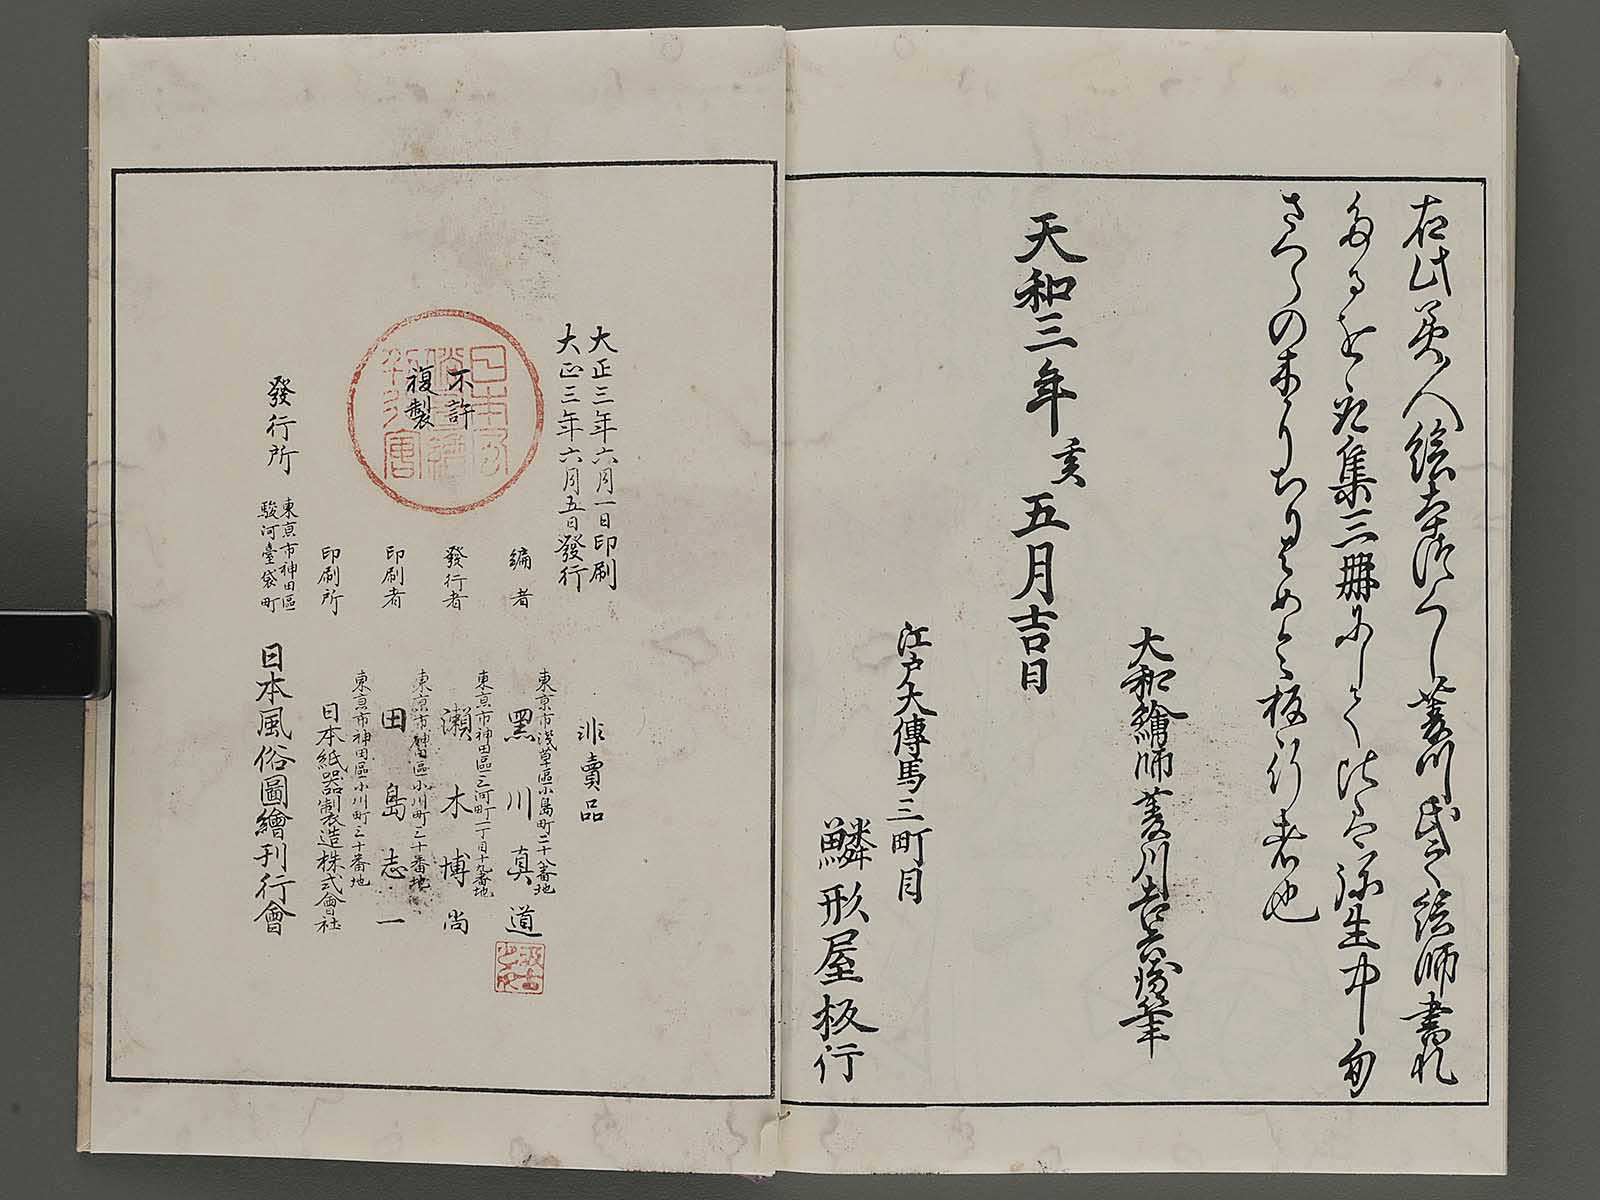 右此美人絵本つくし菱川氏之絵師書れ
たるを之集三冊にして比は弥生中旬
さくらの木
板行者也
大和繪師菱川吉兵衛筆
天和三年亥五月吉日
江戸大傳馬三町目
鱗形屋板行
大正三年六月一日印刷
大正三年六月五日發行
非賣品
不許
複製
編者
東京市淺草區小島町二十八番地
黑川真道
發行者
東京市神田區三河町一丁目十九番地
瀨木博尚
印刷者
東京市神田區小川町三十番地
田島志一
印刷所
東京市神田區小川町三十番地
日本紙器製造株式會社
發行所
東京市神田區
駿河臺袋町
日本風俗圖繪刊行會